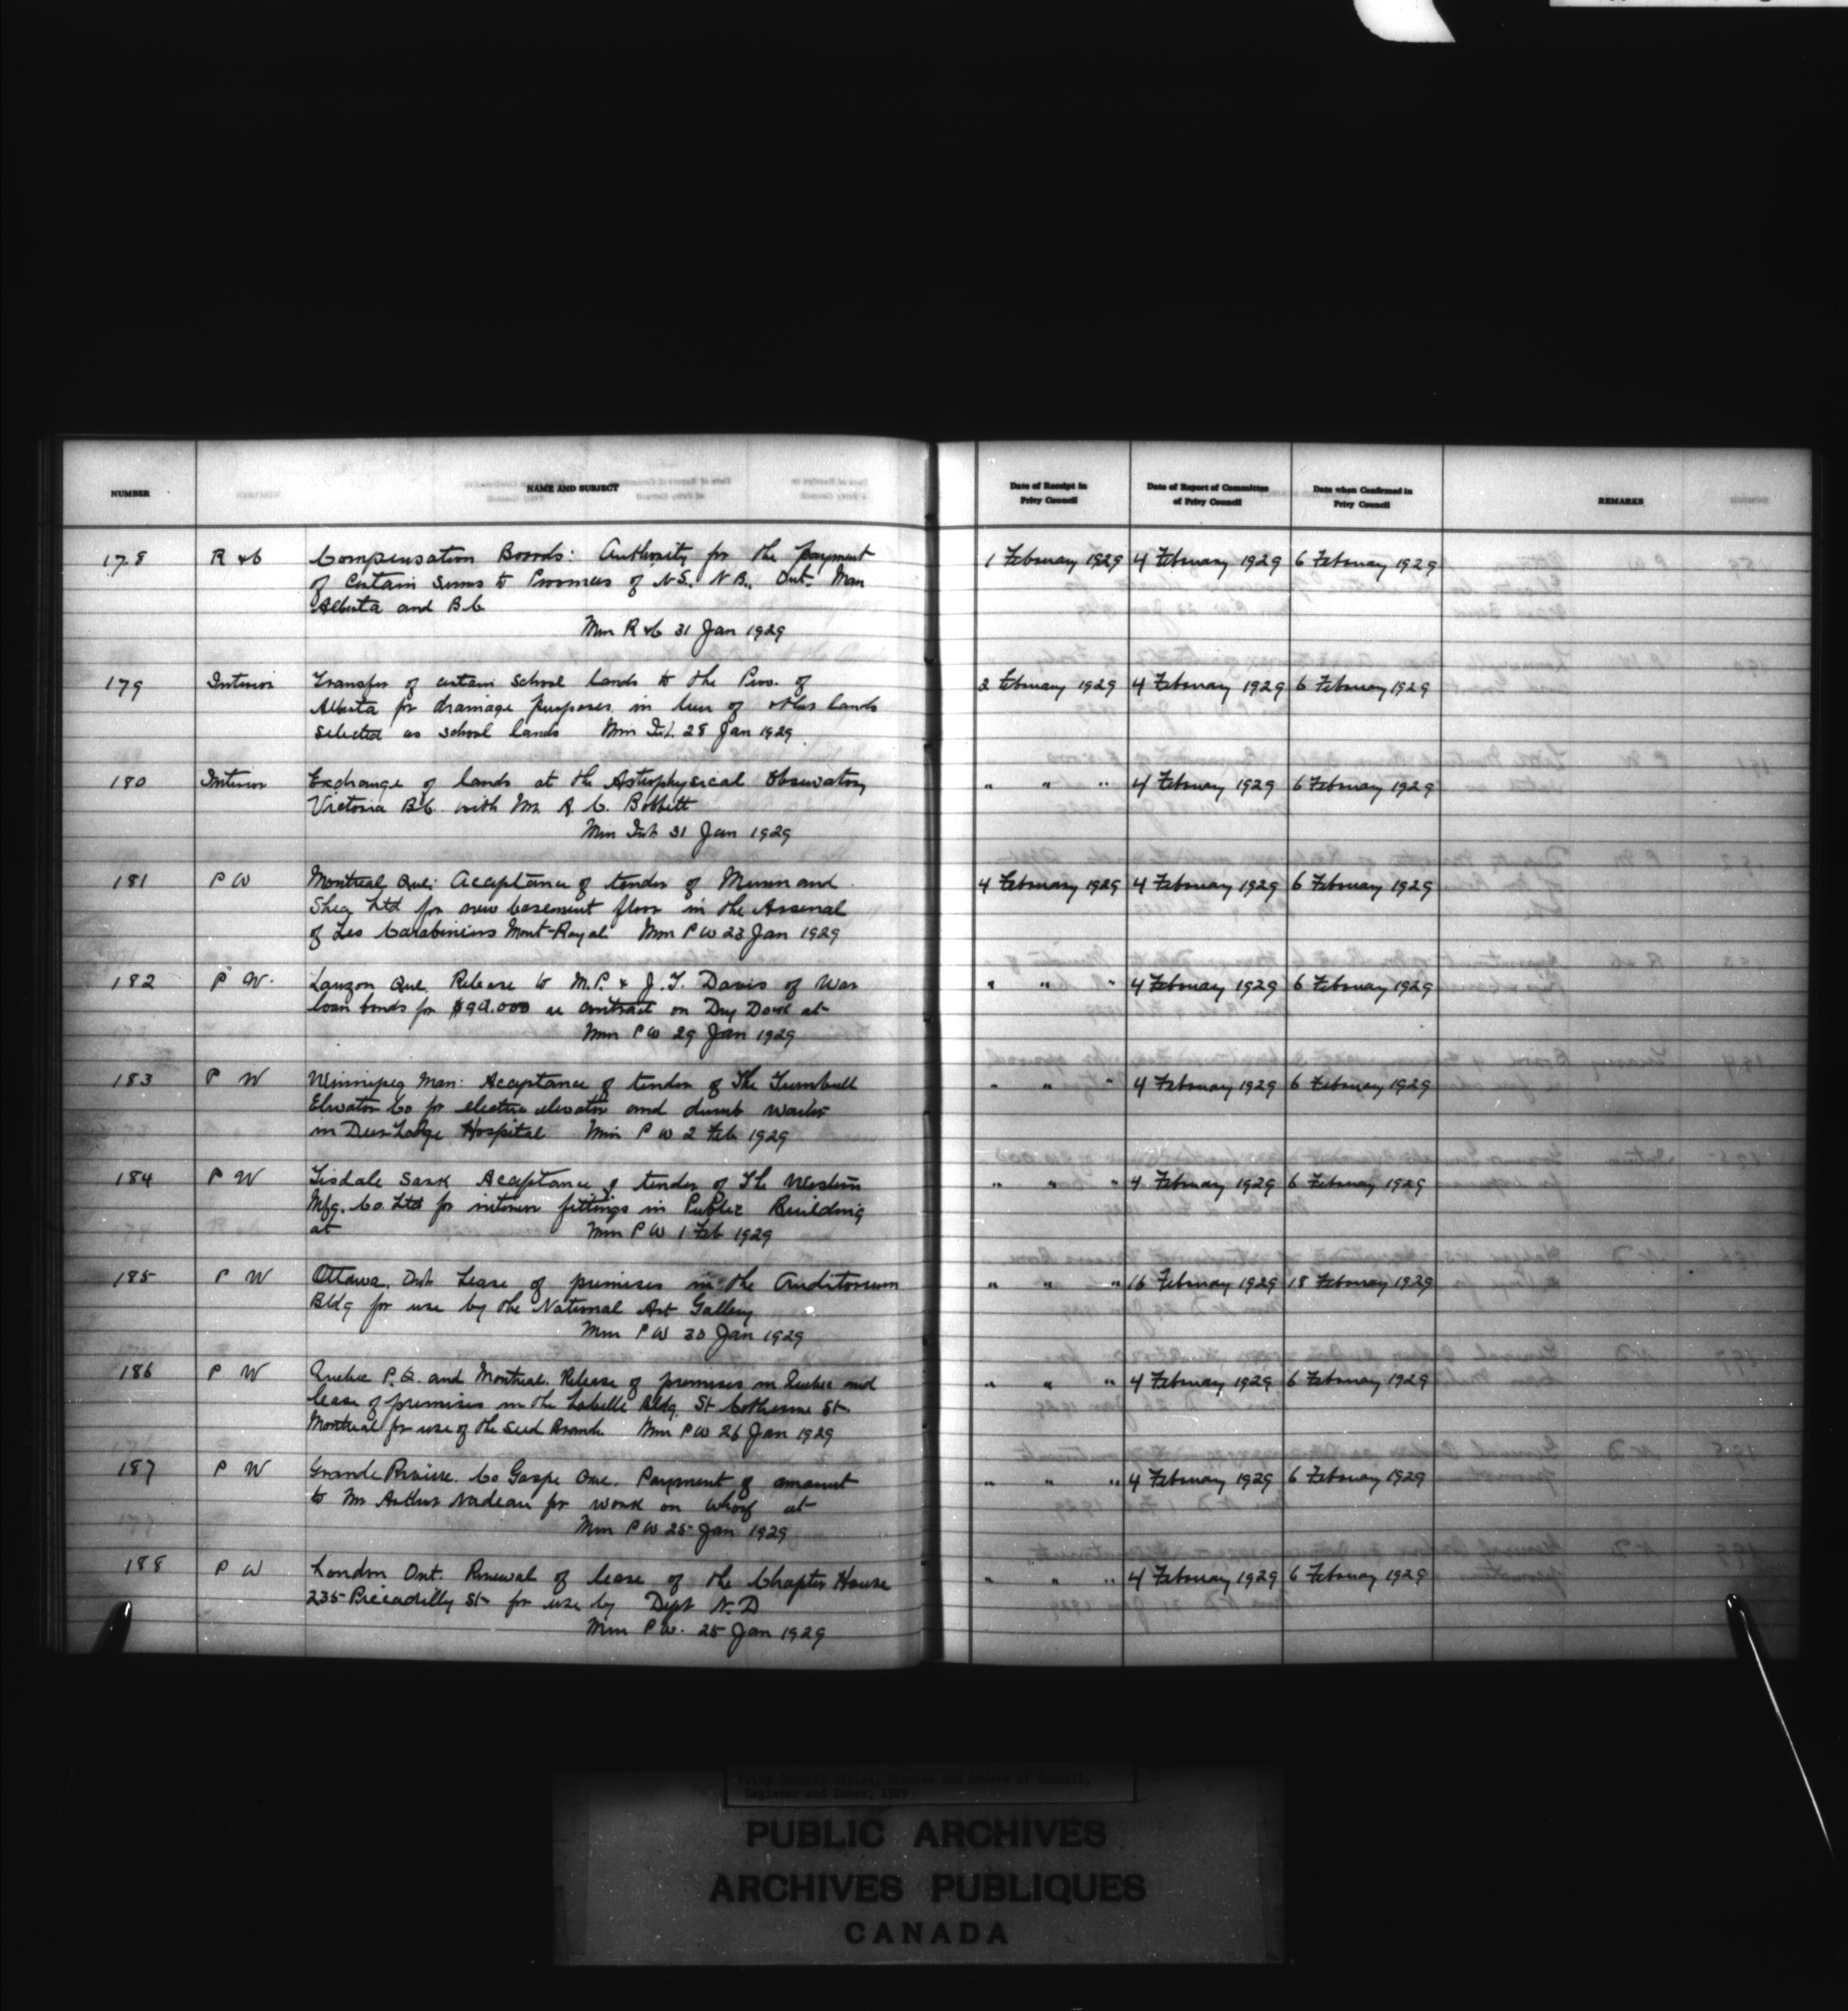 NUMBER NAME AND SUBJECT Date of Receipt in Privy Council Date of Report of Committee of Privy Council Date when Confirmed in Privy Council REMARKS
178 R & C Compensation Boards: Authority for the payment 1 February 1929 4 February 1929 6 February 1929
of certain sums to Provinces of N.S. N.B., Ont. Man
Alberta and B.C.
Mem R & C 31 Jan 1929
179 Interior Transfer of certain school lands to the Prov. of 2 February 1929 4 February 1929 6 February 1929
Alberta for drainage purposes in lieu of other lands
selected as school lands Mem Int. 28 Jan 1929
180 Interior Exchange of lands at the Astrophysical Observatory " " " 4 February 1929 6 February 1929
Victoria B.C. with Mr. A. C. Bobbitt
Mem Int. 31 Jan 1929
181 P W Montreal, Que; Acceptance of tender of and 4 February 1929 4 February 1929 6 February 1929
Shea Ltd for new basement floor in the Arsenal
of Les Carabiniers Mont-Royal Mem P W 23 Jan 1929
182 P W. Lauzon Que. Release to M.P. & J.T. Davis of War " " " 4 February 1929 6 February 1929
loan bonds for re contract on Dry Dock at
Mem P W 29 Jan 1929
183 P W Winnipeg Man: Acceptance of tender of The Turnbull " " " 4 February 1929 6 February 1929
Elevator Co for electric elevator and dumb waiter
in Deer Lodge Hospital Mem P W 2 Feb 1929
184 P W Tisdale Sask Acceptance of tender of The Western " " " 4 February 1929 6 February 1929
Mfg. Co. Ltd for interior fittings in Public Building
at Mem P W 1 Feb 1929
185 P W Ottawa, Ont. Lease of premises in the Auditorium " " " 16 February 1929 18 February 1929
Bldg for use by the National Art Gallery
Mem P W 30 Jan 1929
186 P W Quebec P.Q. and Montreal. Release of premises in Quebec and " " " 4 February 1929 6 February 1929
lease of premises in the Labelle Bldg. St Catherine St.
Montreal for use of the Seed Branch Mem P W 26 Jan 1929
187 P W Grande Riviere. Co Gaspe Que. Payment of amount " " " 4 February 1929 6 February 1929
to Mr Arthur Nadeau for work on wharf at
Mem P W 25 Jan 1929
188 P W London Ont. Renewal of lease of the Chapter House " " " 4 February 1929 6 February 1929
235 Piccadilly St. for use by Dept N.D
Mem P W. 25 Jan 1929
Privy Council Office, Minutes and Orders of Council,
Register and Index, 1929
PUBLIC ARCHIVES
ARCHIVES PUBLIQUES
CANADA